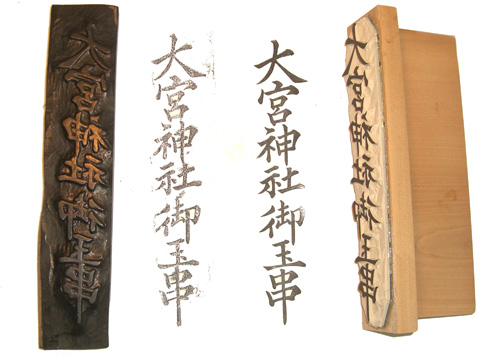 大宮神社御玉串
大宮神社御玉串
大宮神社御玉串
大宮神社御玉串